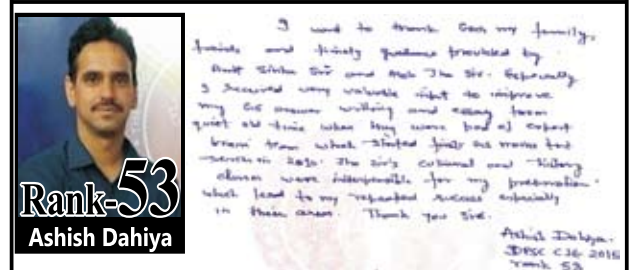 Rank-53
Ashish Dahiya
I want to thank God, my family,
friends and timely guidance provided by
Sinha Sir and Alok Jha Sir. Especially
I received very valuable input to improve
my GS answer writing and essay from
quiet old time when they were part of expert
team which started first GS mains test
series in 2010. Jha Sir's cultural and history
classes were for my preparation
which lead to my repeated success especially
in these areas. Thank you Sir.
Ashish Dahiya.
UPSC CSE 2015
rank 53